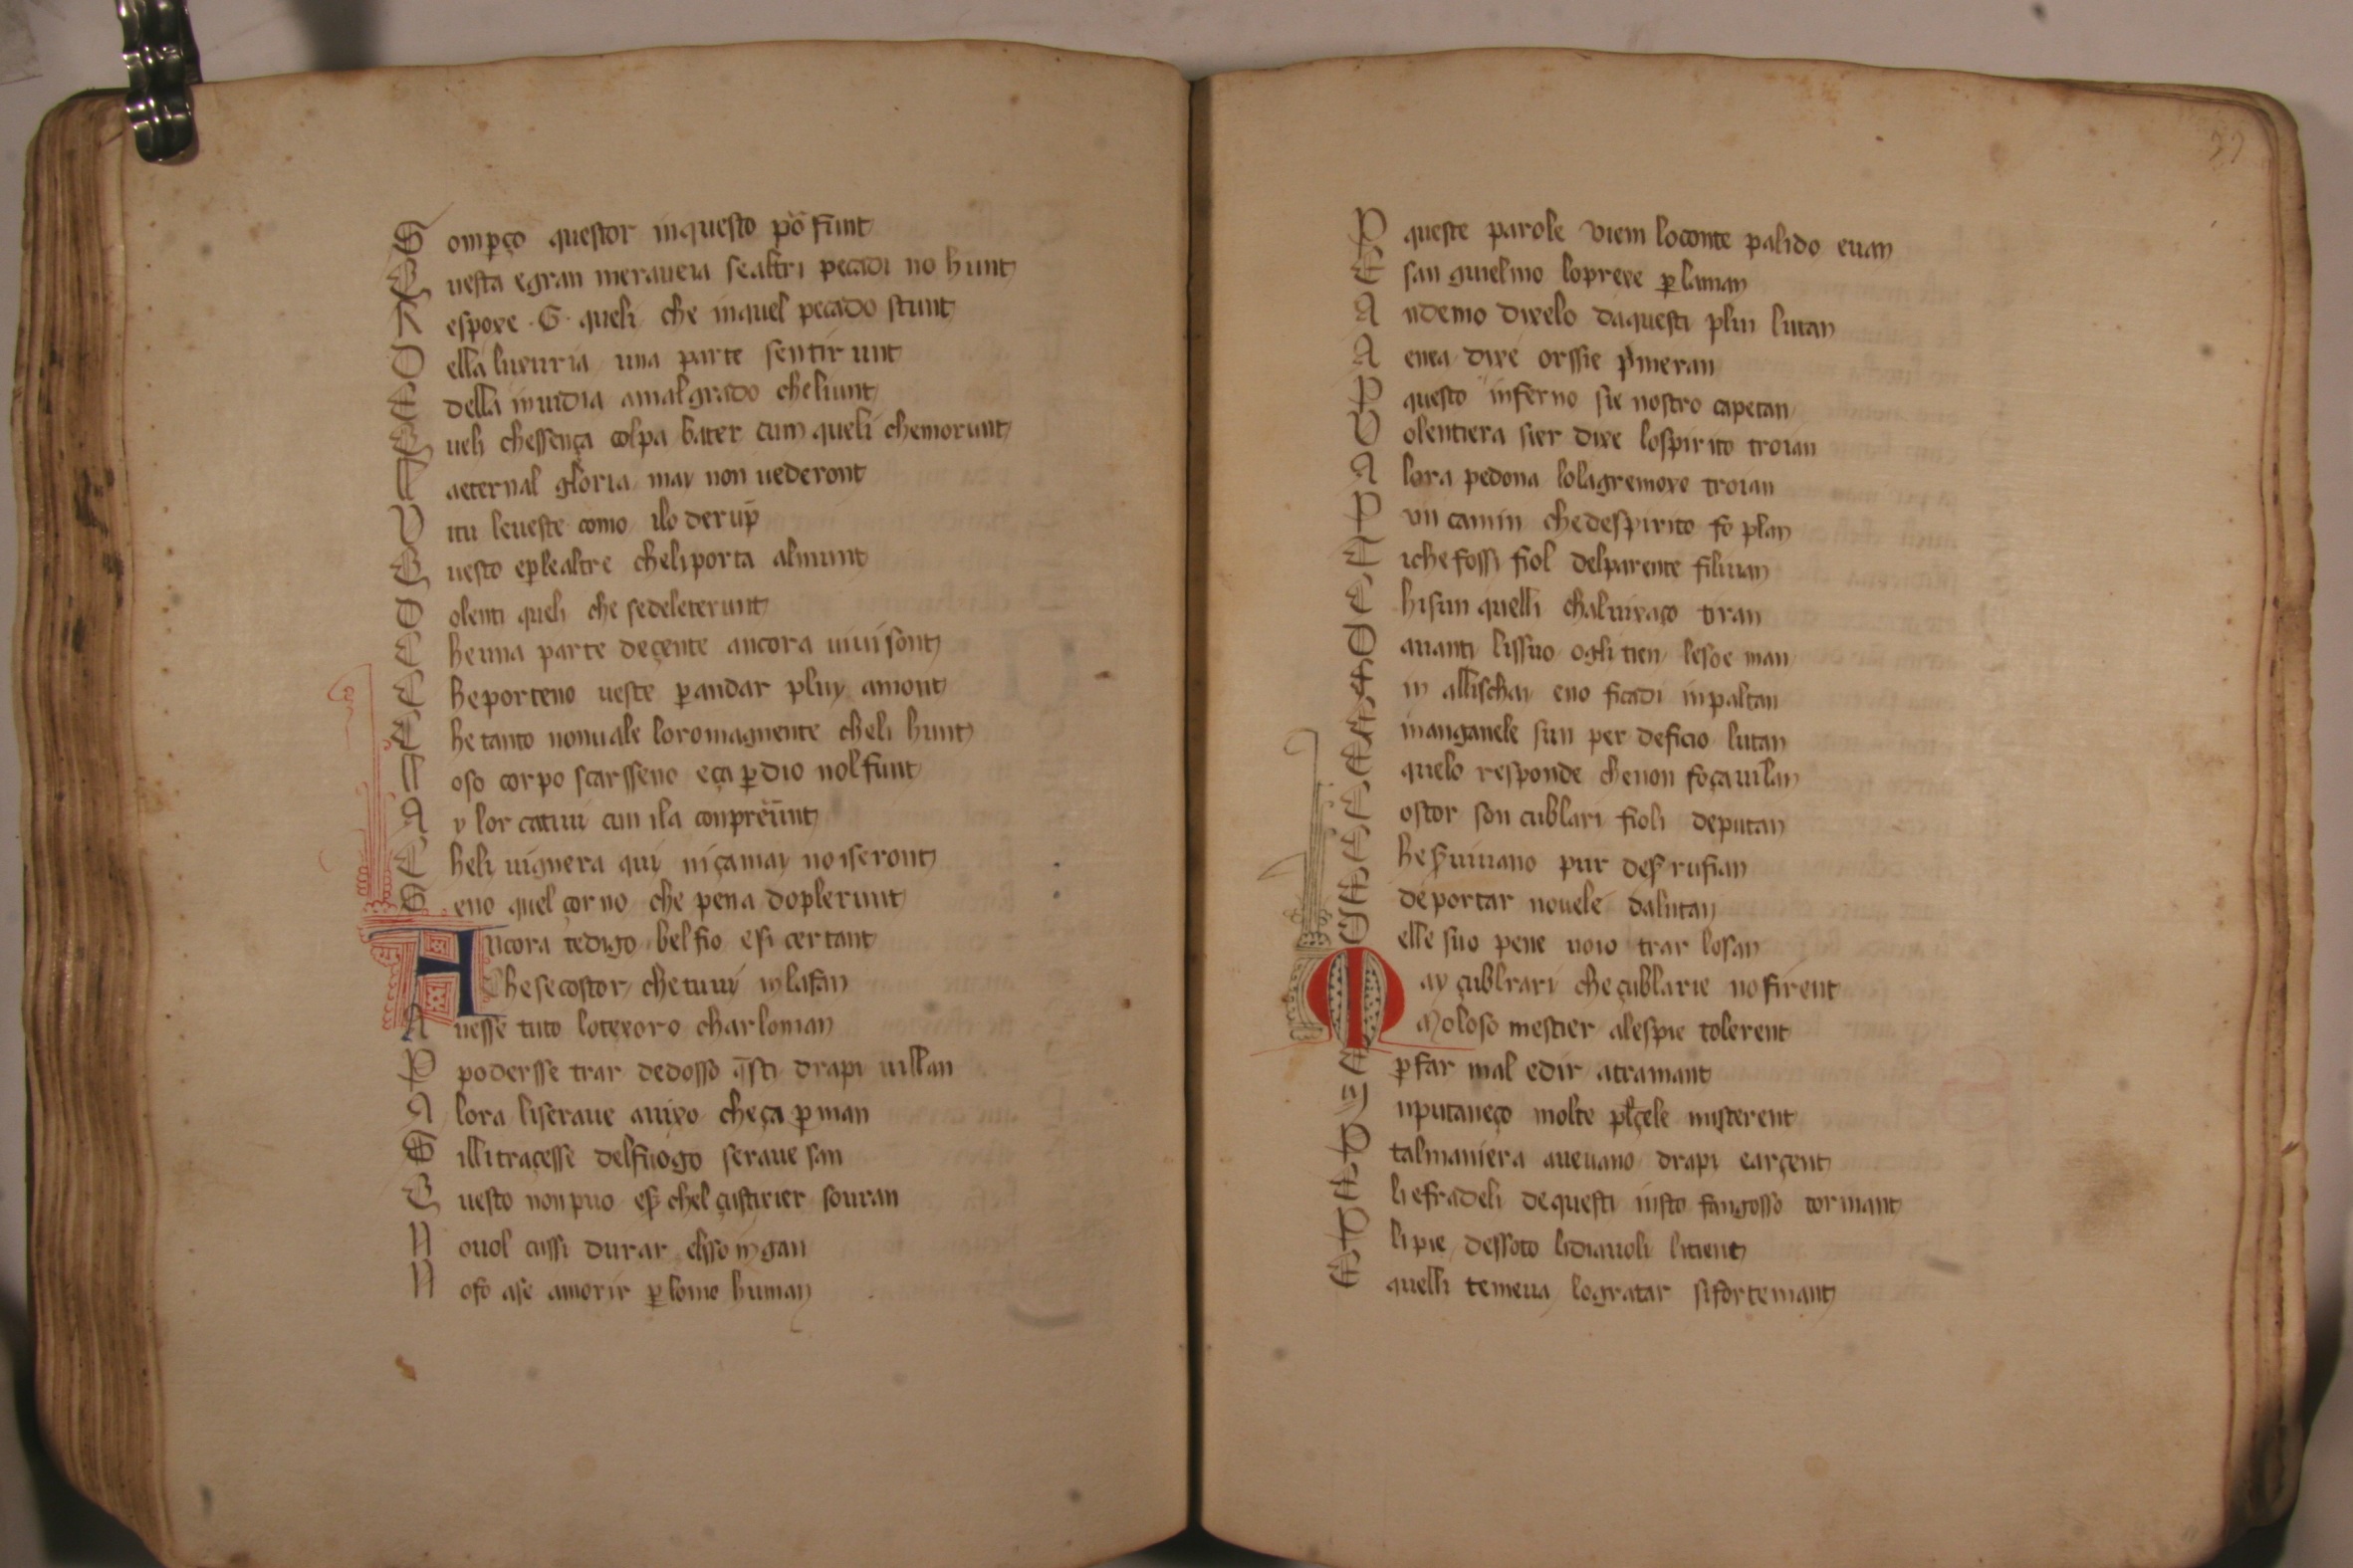 S omꝑço questor inquesto põ funt
Q uesta egran meraueia sealtri pecadi no hunt
R espoxe · G · queli che inquel pecado stunt
D ella luxuria una parte sentirunt
E della inuidia amalgrado cheliunt
Q ueli chessença colpa bater cum queli chemorunt
L aeternal gloria may non uederont
V itu leueste como ilo derup̃
Q uesto eꝑlealtre cheliporta almunt
D olenti queli che sedeleterunt
C heuna parte deçente ancora uiui sont
C heporteno ueste ꝑandar pluy amont
C he tanto nonuale loromagnente cheli hunt
L oso corpo scarsseno eça ꝑdio nolfunt
A y lor catiui cun ila conprẽũnt
C heli uignera qui niçamay noiseront
S eno quel çorno che pena doplerunt
Ancora tedigo belfio esi certant
Chesecostor chetuui inlafan
A uesse tuto lotexoro charloman
P podersse trar dedosso q̃sti drapi uillan
A lora liseraue auixo cheça ꝑman
S illitraçesse delfuogo seraue san
Q uesto nonpuo eẜ chel çustixier souran
N ouol cussi durar elsso ingan
N ofo ase amorir ꝑlomo human
P queste parole viem loconte palido euan
E san guielmo loprexe ꝑlaman
A ndemo dixelo daquesti pluy lutan
A enea dixe orssie p̃meran
P questo inferno sie nostro capetan
V olentiera sier dixe lospirito troian
A lora pedona lolagremoxe troian
P vn camin chedespirito fo plan
E ichefossi fiol delparente filiuan
C hisun quelli chaluixaço tiran
D auanti lissuo ogli tien lesoe man
E in allischay eno ficadi inpaltan
E manganele sun per deficio lutan
E quelo responde chenon foçauilan
C ostor son cublari fioli deputan
C heẜuiuano pur deẜ rufian
E deportar nouele dalutan
D elle suo pene uoio trar losan
May çublrari cheçublarie nofirent
Moloso mestier alespie tolerent
E ꝑfar mal edir atramant
I nputaneço molte pl̃çele misterent
P talmaniera aueuano drapi earçent
E liefradeli dequesti insto fangosso tormant
P lipie dessoto lidiauoli litient
E quelli temeua logratar sifortemant